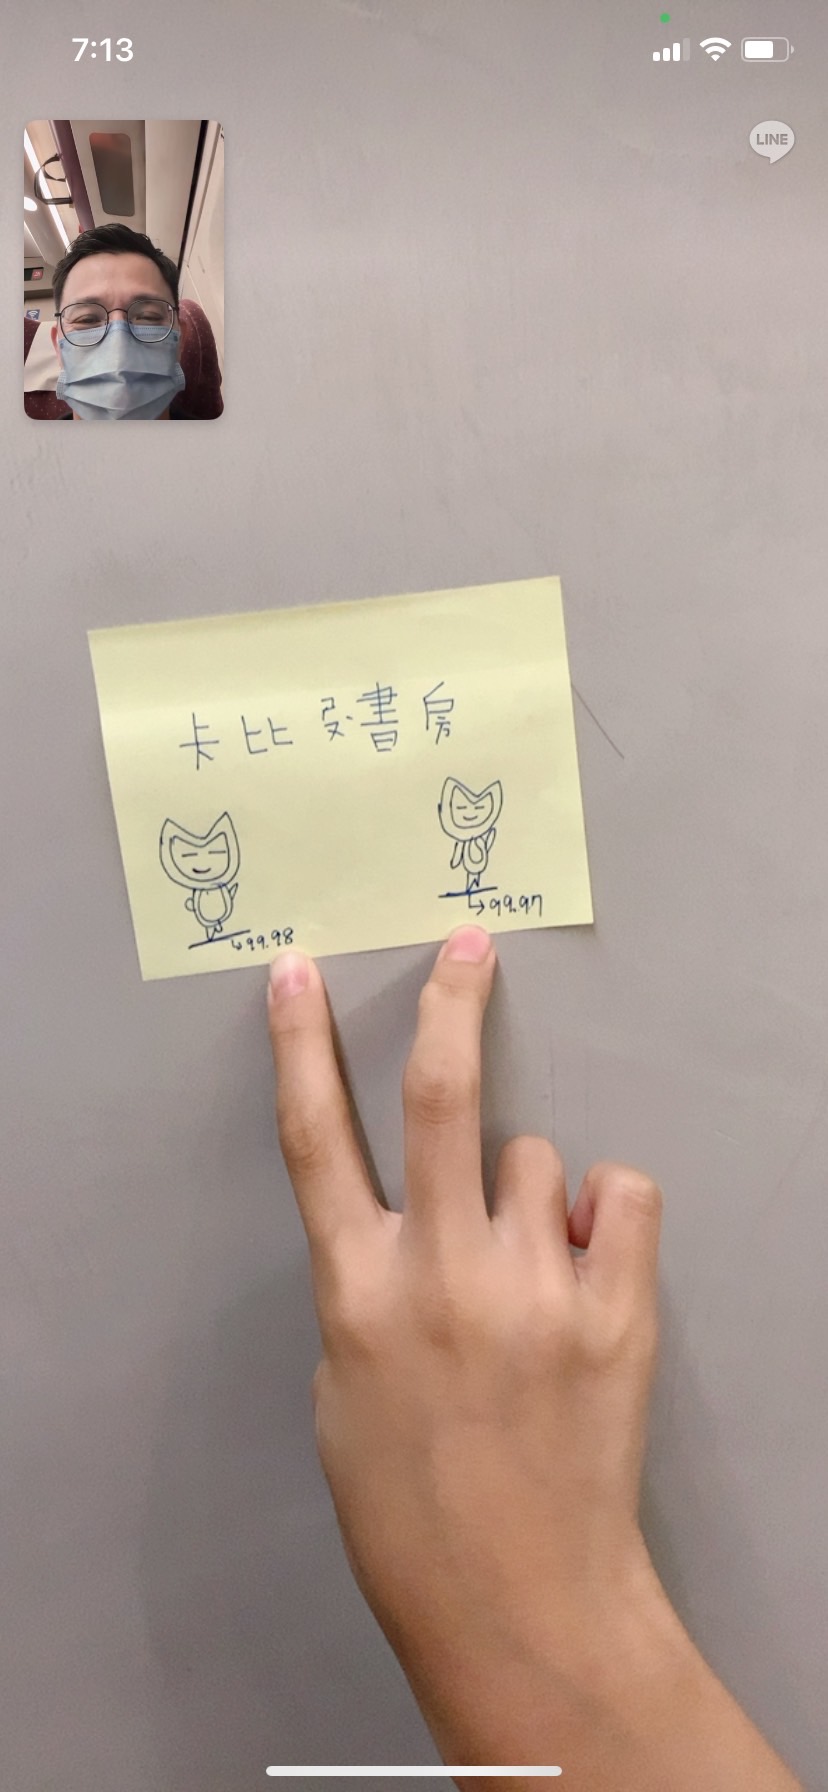 7:13
LINE
卡比 書房
99.98
99.97